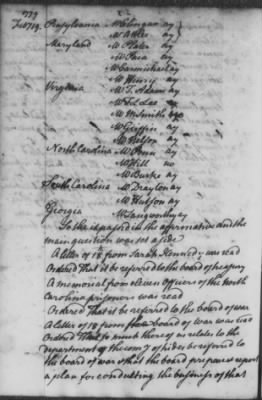 1779
Feb 19. Pennsylvania Mr Clingan ay
Mr Atlee ay
Maryland Mr Plater ay
Mr Paca ay
Mr Carmichael ay
Mr Henry ay
Virginia Mr T. Adams ay
Mr F L Lee
Mr M Smith ay
Mr Griffin ay
Mr Nelson ay
North Carolina Mr Penn ay
Mr Hill
Mr Burke ay
South Carolina Mr Drayton ay
Mr Hutson ay
Georgia Mr Langworthy ay
So the is passed in the affirmative and the
main question was set aside
A letter of 18th from Sarah Kennedy was read
Ordered That it be referred to the board of treasury
A memorial from officers of the north
Carolina prisoners was read
Ordered That it be referred to the board of war
A letter of 18 from board of war was read
Ordered That so much thereof as relates to the
department of the of hides be referred to
the board of war & that the board prepare & report
a plan for conducting the business of that